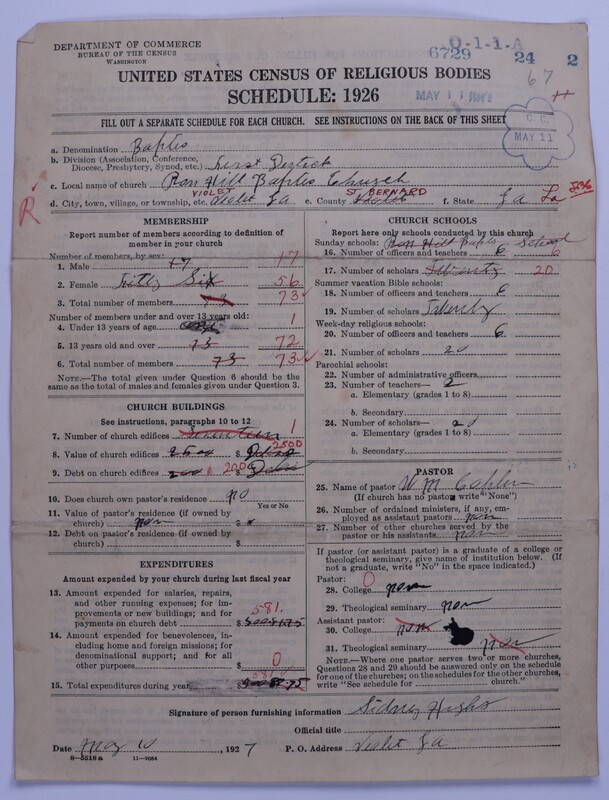 DEPARTMENT OF COMMERCE
BUREAU OF THE CENSUS
WASHINGTON
O-1-1-A
6729 24 2
67
UNITED STATES CENSUS OF RELIGIOUS BODIES
SCHEDULE: 1926
MAY 11
C. C.
MAY 11
FILL OUT A SEPARATE SCHEDULE FOR EACH CHURCH. SEE INSTRUCTIONS ON THE BACK OF THIS SHEET
a. Denomination Baptis
b. Division (Association, Conference,
Diocese, Presbytery, Synod, etc.) First District
c. Local name of church Ron Hill Baptis Church
VIOLET ST. BERNARD
d. City, town, village, or township, etc. Violet La e. County f. State La La
R
MEMBERSHIP
Report number of members according to definition of
member in your church
Number of members by sex:
1. Male 17 17
2. Female fifty Six 56
3. Total number of members 73 73
Number of members under and over 13 years old:
4. Under 13 years of age 1
5. 13 years old and over 73 72
6. Total number of members 73 73
NOTE.—The total given under Question 6 should be the
same as the total of males and females given under Question 3.
CHURCH BUILDINGS
See instructions, paragraphs 10 to 12
7. Number of church edifices 1
8. Value of church edifices 2500 $ 2500
9. Debt on church edifices 200 $ 200
10. Does church own pastor's residence no
Yes or No
11. Value of pastor's residence (if owned by
church) non $
12. Debt on pastor's residence (if owned by
church) $
EXPENDITURES
Amount expended by your church during last fiscal year
13. Amount expended for salaries, repairs,
and other running expenses; for im-
provements or new buildings; and for
payments on church debt $ 581.
14. Amount expended for benevolences,
including home and foreign missions; for
denominational support; and for all
other purposes $ 0
15. Total expenditures during year $ 581
CHURCH SCHOOLS
Report here only schools conducted by this church
Sunday schools: Ron Hill Baptis School
16. Number of officers and teachers 6 6
17. Number of scholars Twenty 20
Summer vacation Bible schools:
18. Number of officers and teachers 6
19. Number of scholars Twenty
Week-day religious schools:
20. Number of officers and teachers 6
21. Number of scholars 20
Parochial schools:
22. Number of administrative officers
23. Number of teachers— 2
a. Elementary (grades 1 to 8)
b. Secondary
24. Number of scholars— 20
a. Elementary (grades 1 to 8)
b. Secondary
PASTOR
25. Name of pastor W M
(If church has no pastor write "None")
26. Number of ordained ministers, if any, em-
ployed as assistant pastors non
27. Number of other churches served by the
pastor or his assistants non
If pastor (or assistant pastor) is a graduate of a college or
theological seminary, give name of institution below. (If
not a graduate, write "No" in the space indicated.)
Pastor: 0
28. College non
29. Theological seminary non
Assistant pastor:
30. College non
31. Theological seminary non
NOTE.—Where one pastor serves two or more churches,
Questions 28 and 29 should be answered only on the schedule
for one of the churches; on the schedules for the other churches,
write "See schedule for church."
Signature of person furnishing information Sidney Highs
Official title
Date may 10, 1927 P. O. Address Violet La
8—5518 a 11—9084